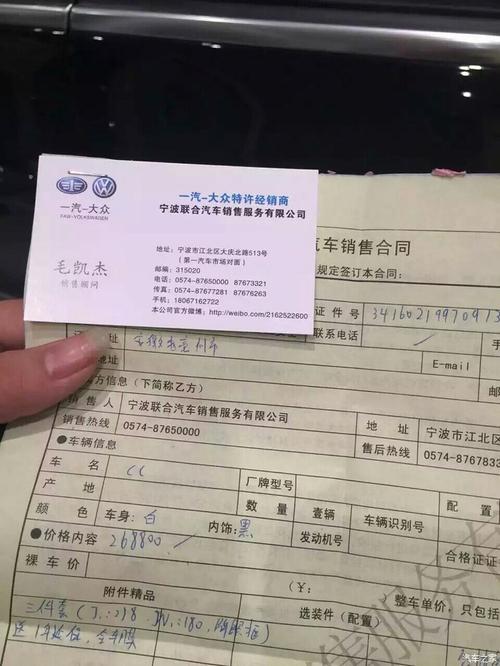 一汽-大众
FAW-VOLKSWAGEN
毛凯杰
销售顾问
一汽-大众特许经销商
宁波联合汽车销售服务有限公司
地址：宁波市江北区大庆北路513号
（第一汽车市场对面）
邮编：315020
电话：0574-87650000 87673321
传真：0574-87677281 87676263
手机：18067162722
本公司官方微博：http://weibo.com/2162522600
汽车销售合同
规定签订本合同：
证件号 34160219970913
联系电话
手
址
E-mail
方信息（下简称乙方）
销售人 宁波联合汽车销售服务有限公司 地址 宁波市江北区
销售热线 0574-87650000 售后热线 0574-8767833
●车辆信息
车名 CC 厂牌型号
产地 数量 壹辆 配置
颜色 车身：白 内饰：黑 发动机号 车辆识别号
●价格内容 268800 合格证证
裸车价 （￥：
附件精品 整车单价，只包括
选装件（配置）
三件套
送
汽车之家